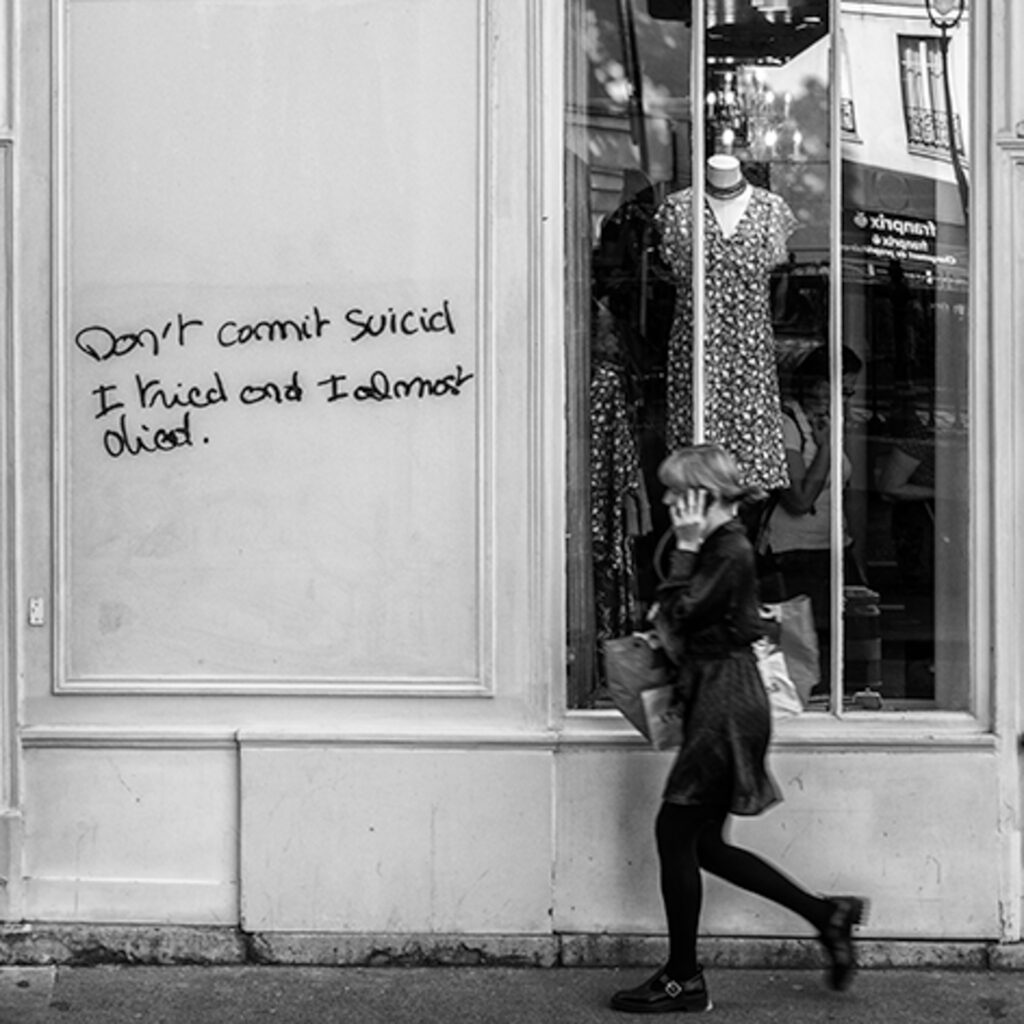 Don't commit suicid
I tried and I almost
died.
franprix
franprix